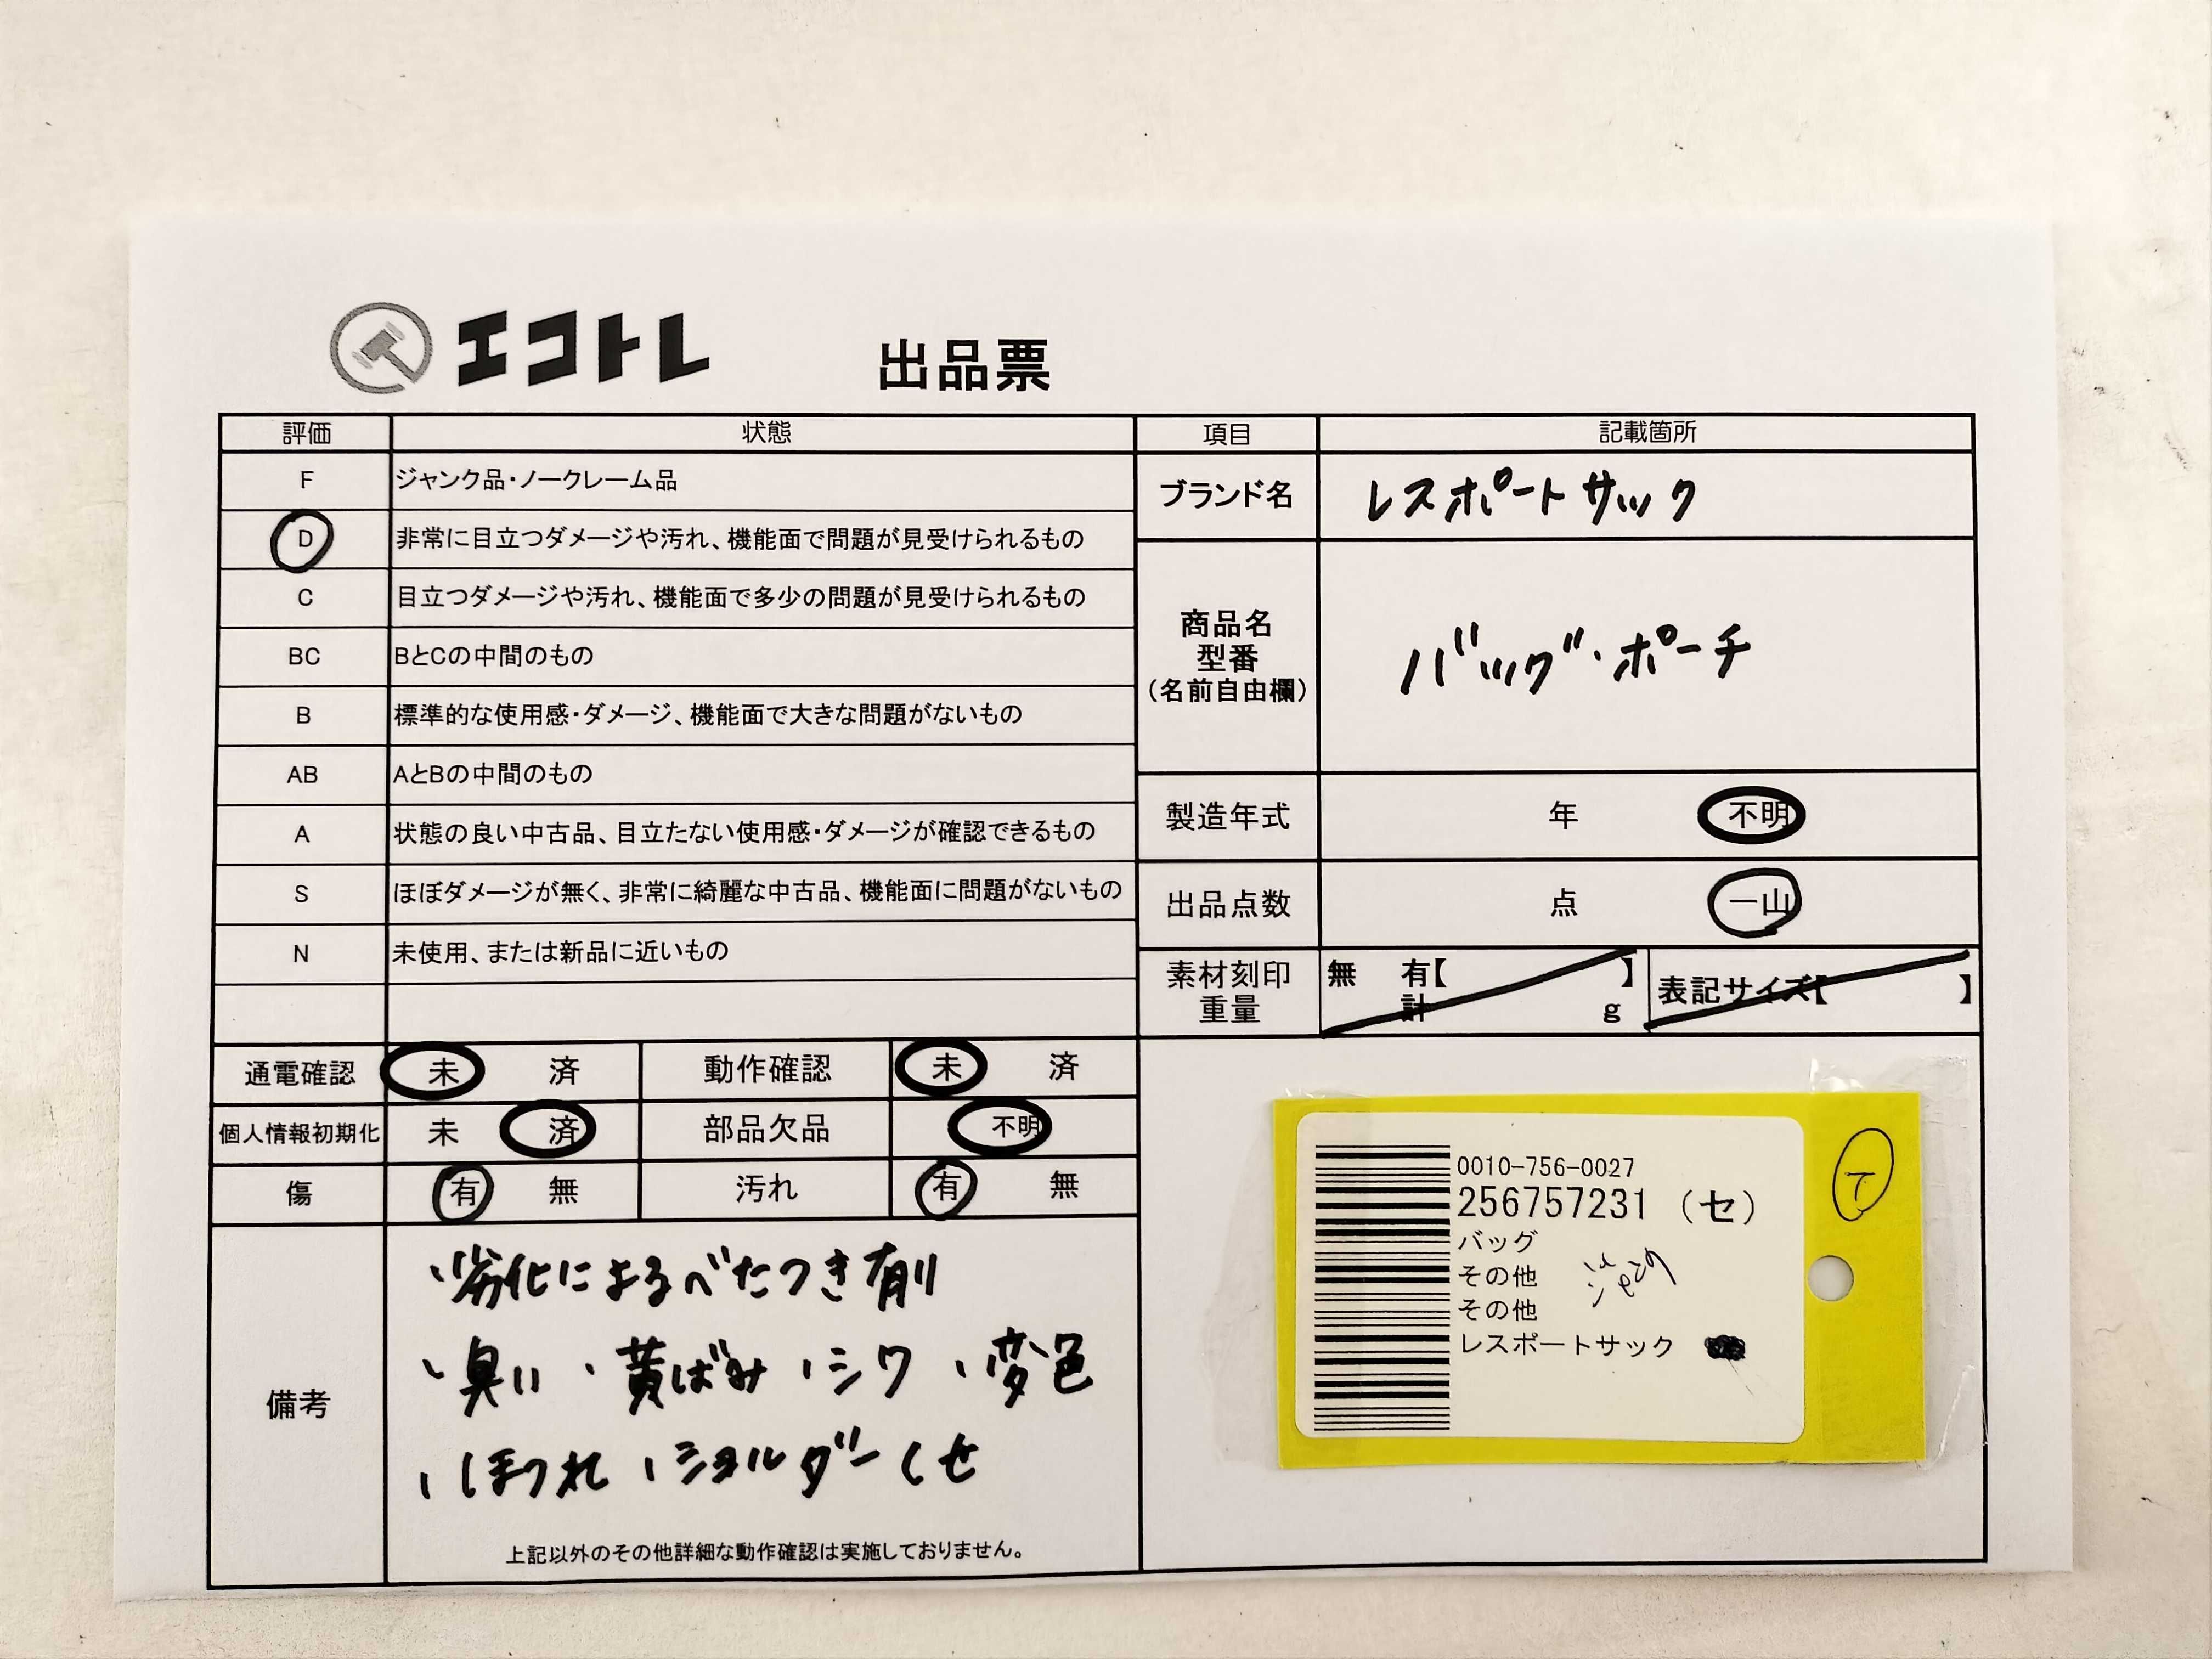 エコトレ 出品票
評価 状態 項目 記載箇所
F ジャンク品・ノークレーム品
D 非常に目立つダメージや汚れ、機能面で問題が見受けられるもの
C 目立つダメージや汚れ、機能面で多少の問題が見受けられるもの
BC BとCの中間のもの
B 標準的な使用感・ダメージ、機能面で大きな問題がないもの
AB AとBの中間のもの
A 状態の良い中古品、目立たない使用感・ダメージが確認できるもの
S ほぼダメージが無く、非常に綺麗な中古品、機能面に問題がないもの
N 未使用、または新品に近いもの
ブランド名 レスポートサック
商品名
型番
(名前自由欄)
バッグ・ポーチ
製造年式 年 不明
出品点数 点 一山
素材刻印
重量
無 有【 】
計 g
表記サイズ【 】
通電確認 未 済 動作確認 未 済
個人情報初期化 未 済 部品欠品 不明
傷 有 無 汚れ 有 無
備考
・劣化によるべたつき有り
・臭い ・黄ばみ ・シワ ・変色
・ほつれ ・ショルダーくせ
上記以外のその他詳細な動作確認は実施しておりません。
0010-756-0027
256757231 (セ)
バッグ
その他
その他
レスポートサック